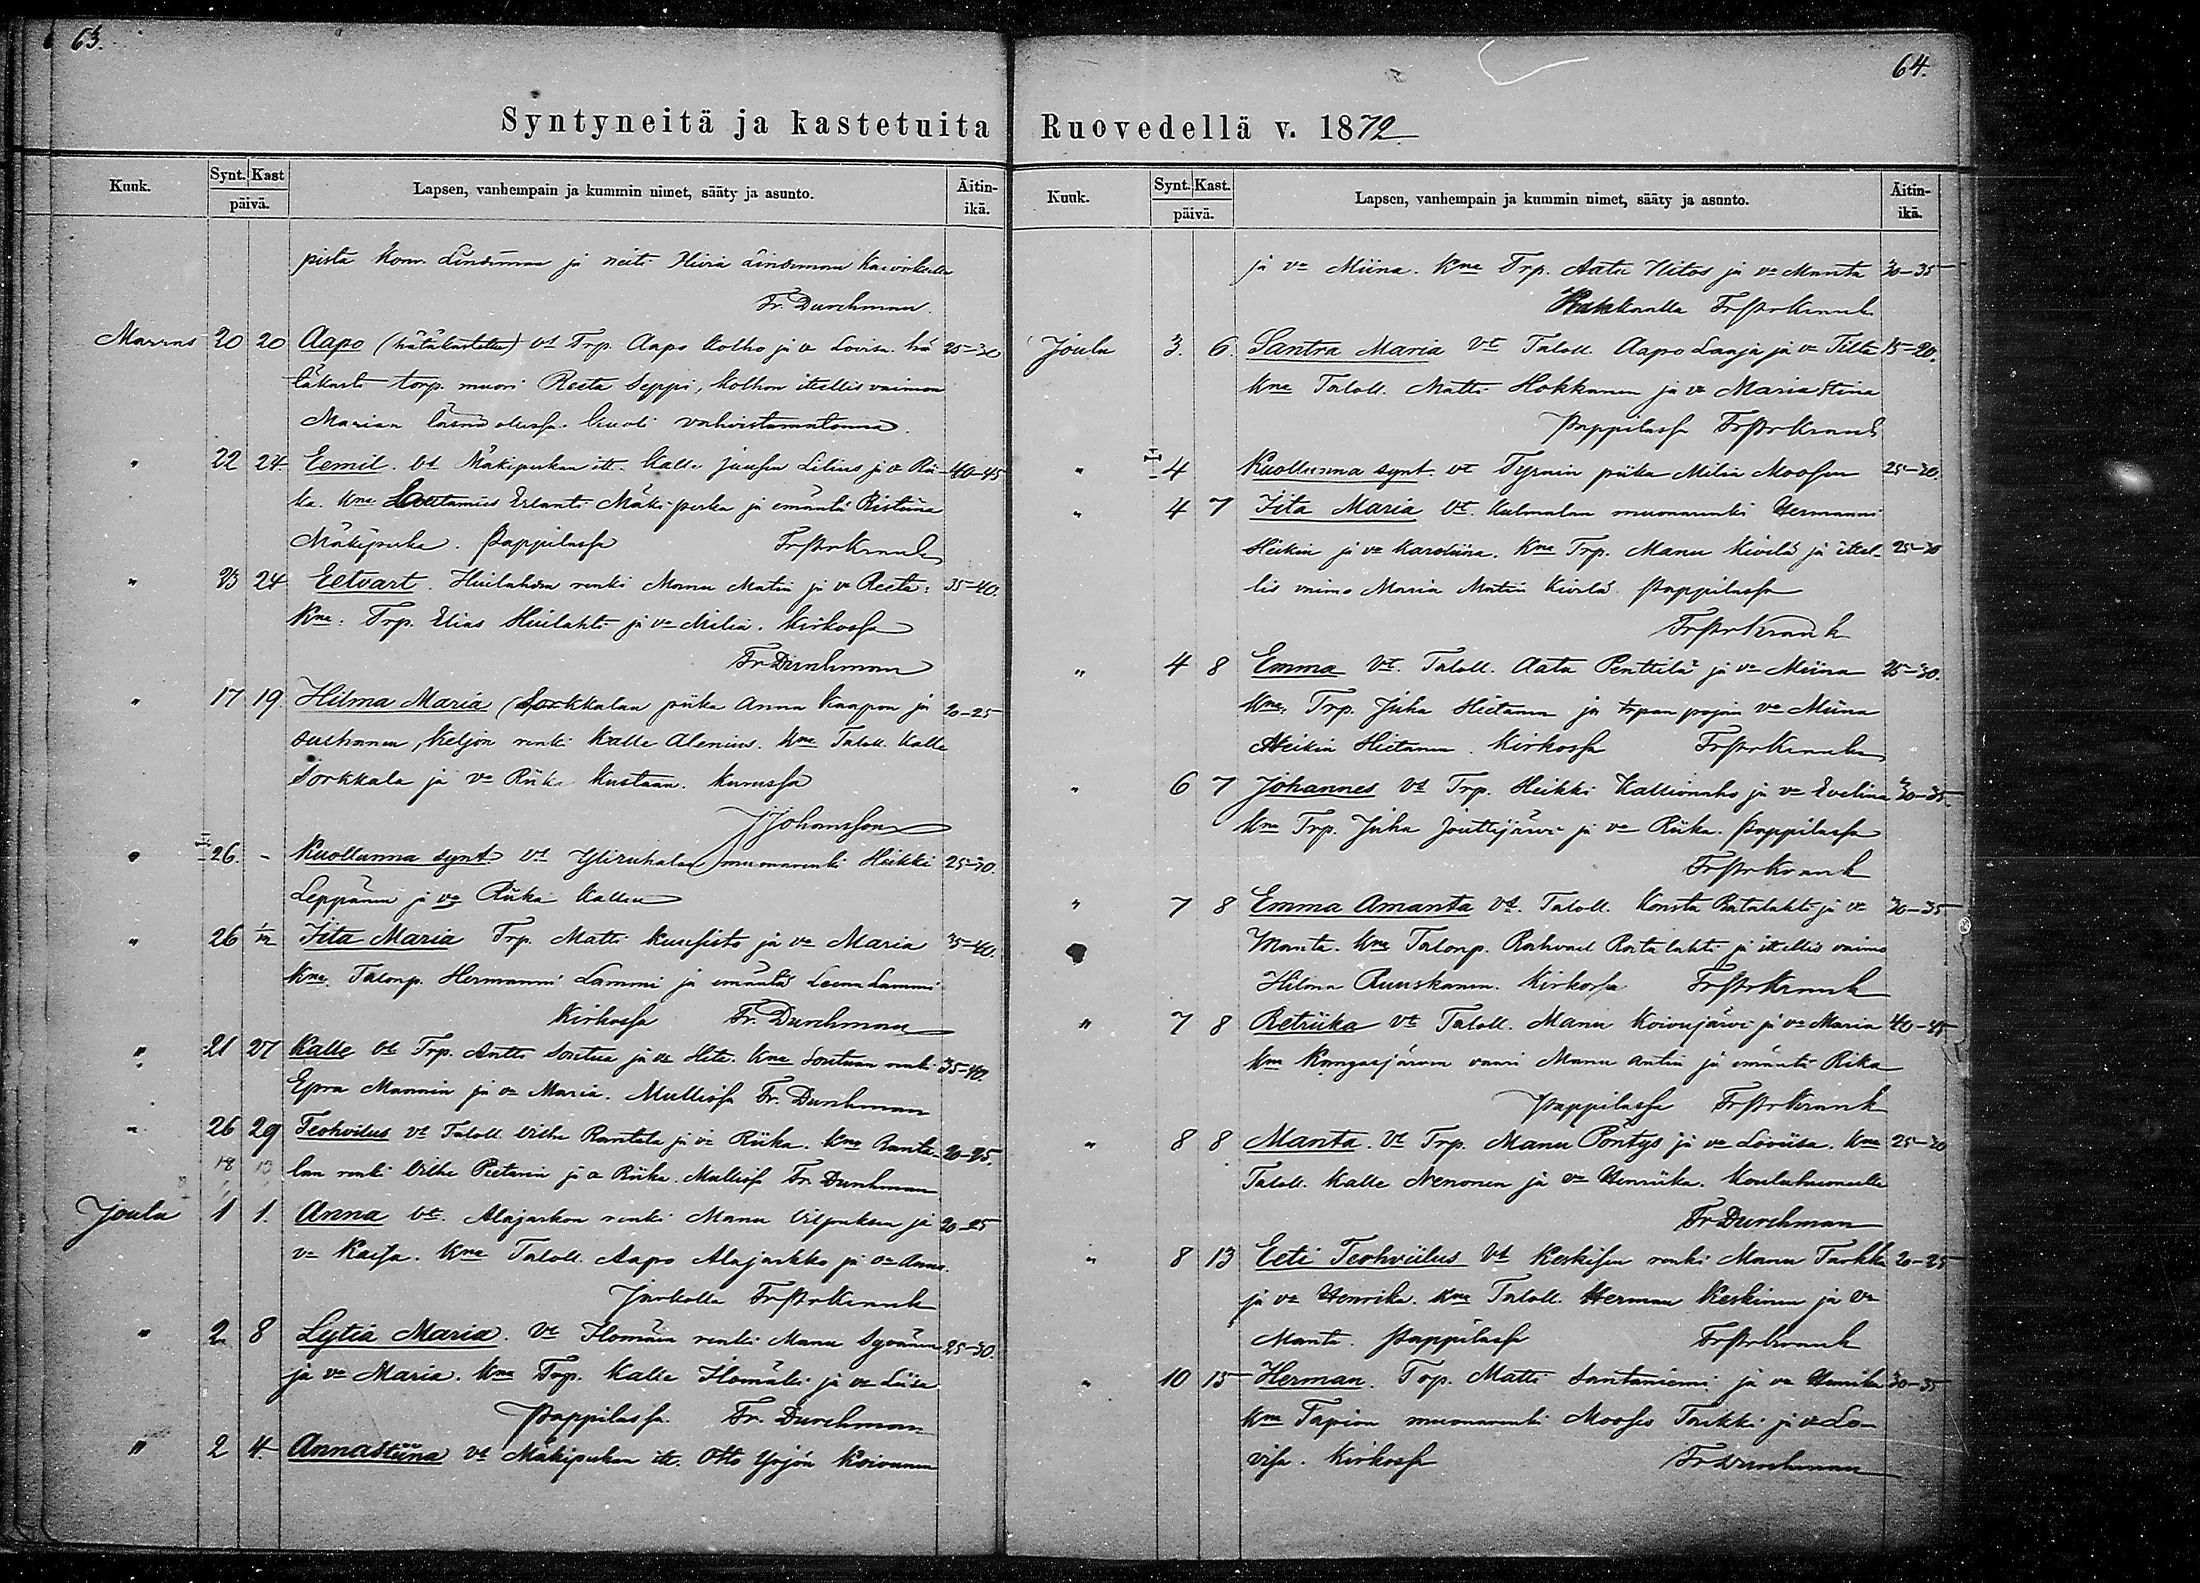 63.
Syntyneitä ja kastetuita
Kuuk. Synt. Kast päivä. Lapsen, vanhempain ja kummin nimet, sääty ja asunto. Äitin-ikä.
pista Konr. Lindeman ja neiti Lindeman
Fr. Durchman.
Marras 20 20 Aapo (hätäkastettu) vt Trp. Aapo Kolho ja va Lovisa. hä 25-30
täkasti torp. muori Reeta Seppi, Kolhon itsellis vaimon
Marian läsnä olessa. Kuoli vahvistamatonna.
" 22 24 Eemil. vt Mäkipurkan itt. Kalle Juusen Lilius ja va Rii- 40-45
ka. Kna Lautamies Erlanti Mäkipurka ja emäntä Ristiina
Mäkipurka. Pappilassa FrPrKrank
" 23 24 Eetvart. Huilahden renki Manu Matin ja va Reeta. 35-40.
Kna. Trp. Elias Huilahti ja va Milia. Kirkossa
Fr Durchman
" 17 19 Hilma Maria (Sorkkalan piika Anna Kaapon ja 20-25
sulhanen, Keljon renki Kalle Alenius. Kna Taloll. Kalle
Sorkkala ja va Riika Kustaan. Kurussa
J Johansson
" 26. - Kuolluna synt vt Yliruhalan muonarenki Heikki 25-30.
Leppänen ja va Riika Kallen
" 26 1/12 Iita Maria Trp. Matti Kuusisto ja va Maria 35-40.
Kna. Talonp. Hermanni Lammi ja emäntä Leena Lammi
Kirkossa Fr. Durchman
" 21 27 Kalle vt Trp. Antti Soutua ja va Heta. Kna Soutuan renki 35-40.
Epra Mannin ja va Maria. Mulliossa Fr. Durchman
" 26 29 Teohvilus vt Taloll. Vilhe Rantala ja va Riika. Kna Ranta- 20-25.
lan renki Vilhe Pietarin ja va Riika. Mulliossa Fr. Durchman
Joulu 1 1. Anna vt. Alajarkon renki Manu Viljuksen ja 20-25
va Kaisa. Kna Taloll. Aapo Alajarkko ja va Anna.
Jarkolla FrPrKrank
" 2 8 Lytia Maria. vt Ilomäin renki Manu Syvänen 25-30.
ja va Maria. Kna Trp. Kalle Ilomäki ja va Liisa
Pappilassa. Fr. Durchman
" 2 4. Annastiina vt Mäkipurkan itt. Otto Yrjön Koivunen
64.
Ruovedellä v. 1872.
Kuuk. Synt. Kast. päivä. Lapsen, vanhempain ja kummin nimet, sääty ja asunto. Äitin-ikä.
ja va Miina. Kna Trp. Aatu Hitos ja va Manta 30-35
FrPrKrank
Joulu 3. 6. Santra Maria vt Taloll. Aapo Laaja ja va Tilta 15-20.
Kna Taloll. Matti Hokkanen ja va Maria Stiina
Pappilassa FrPrKrank
" 4 Kuolluna synt. vt Tyrnin piika Milia Moosen 25-30.
" 4 7 Iita Maria vt. Kulmalan muonarenki Hermanni
Heikin ja va Karoliina. Kna Trp. Manu Kivelä ja itsel- 25-30
lis vaimo Maria Matin Kivelä. Pappilassa
FrPrKrank
" 4 8 Emma vt. Taloll. Aatu Penttilä ja va Miina 25-30.
Kna. Trp. Juha Hietanen ja trpan pojan va Miina
Heikin Hietanen. Kirkossa FrPrKrank
" 6 7 Johannes vt Trp. Heikki Kallionaho ja va Evelina 30-35.
Kna Trp. Juha Jouttijärvi ja va Riika. Pappilassa
FrPrKrank
" 7 8 Emma Amanta vt. Taloll. Konsta Ratalahti ja va 30-35
Manta. Kna Talonp. Rahvael Ratalahti ja itsellis vaimo
Hilma Ruuskanen. Kirkossa FrPrKrank
" 7 8 Retriika vt Taloll. Manu Koivujärvi ja va Maria 40-45
Kna Kangasjärven vaari Manu Antin ja emäntä Riika
Pappilassa FrPrKrank
" 8 8 Manta. vt Trp. Manu Pöntys ja va Loviisa. Kna 25-30
Taloll. Kalle Nenonen ja va Henriika. Kouluhuoneella
Fr Durchman
" 8 13 Eeti Teohviilus vt Keskisen renki Manu Tarkka 20-25
ja va Henrika. Kna Taloll. Herman Keskinen ja va
Manta. Pappilassa FrPrKrank
" 10 15 Herman. Trp. Matti Santaniemi ja va Henrika 30-35
Kna Tapion muonarenki Mooses Tarkki ja va Lo-
visa. Kirkossa Fr Durchman